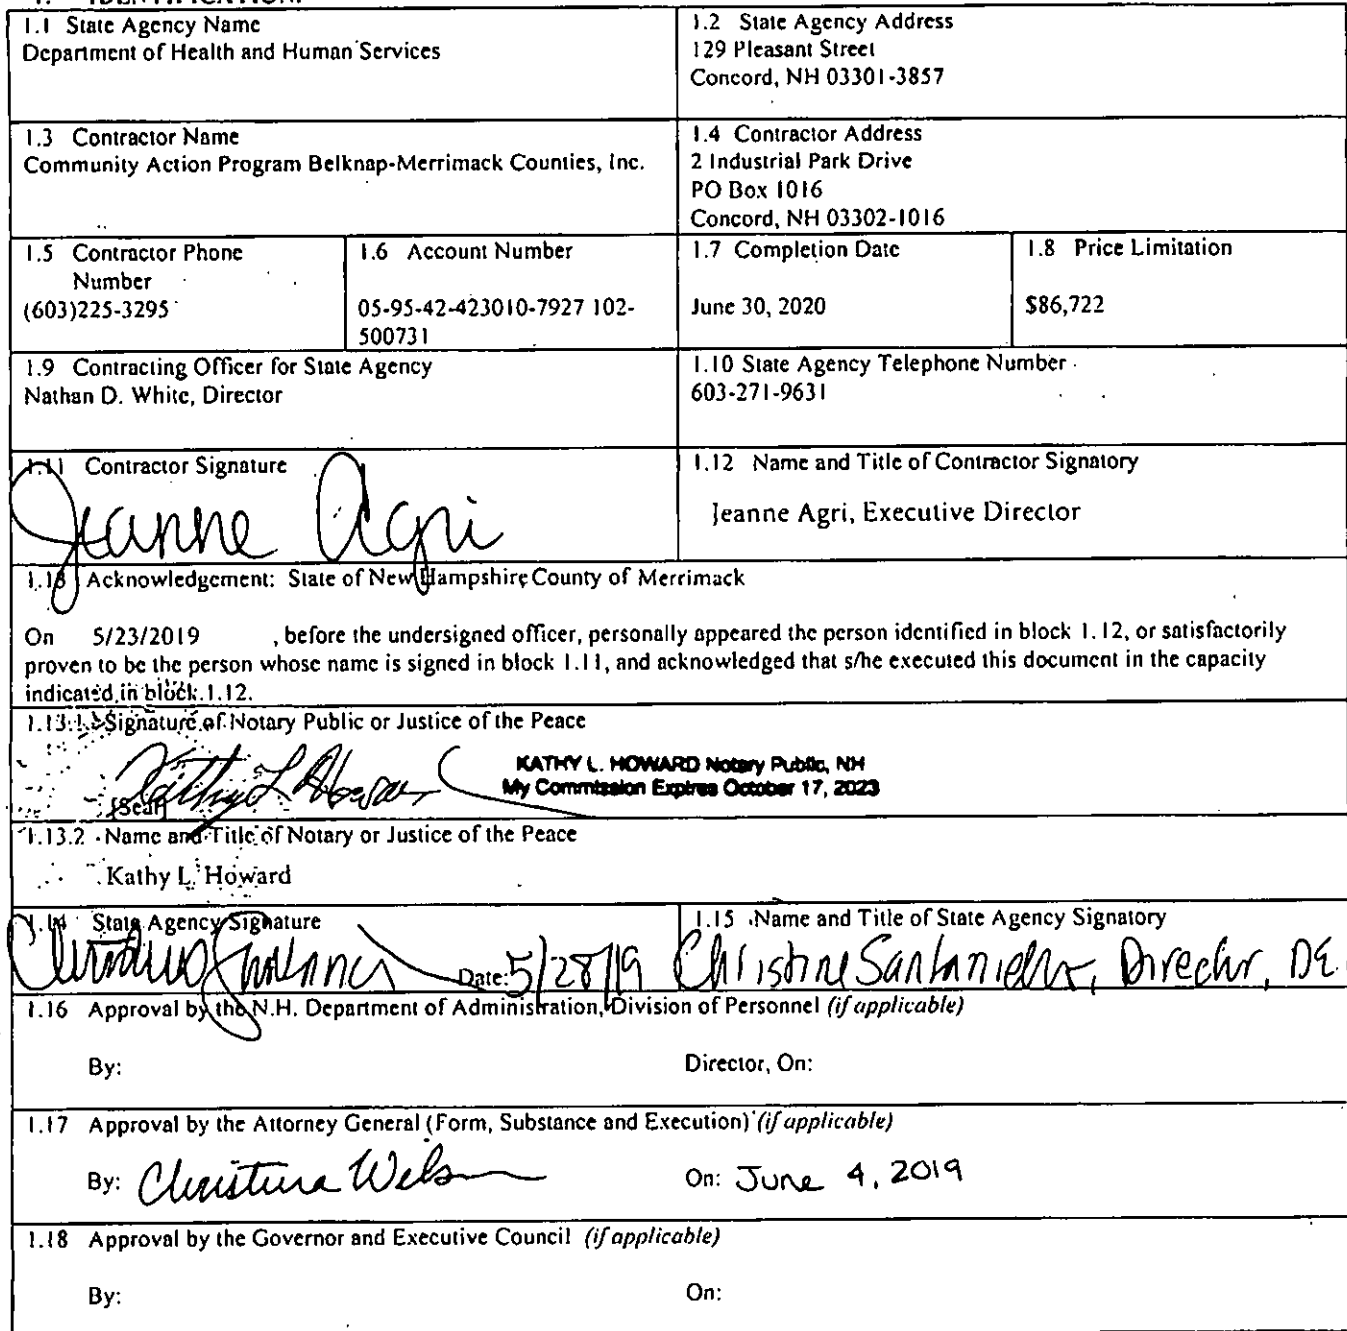 1. IDENTIFICATION.
1.1 State Agency Name
Department of Health and Human Services
1.2 State Agency Address
129 Pleasant Street
Concord, NH 03301-3857
1.3 Contractor Name
Community Action Program Belknap-Merrimack Counties, Inc.
1.4 Contractor Address
2 Industrial Park Drive
PO Box 1016
Concord, NH 03302-1016
1.5 Contractor Phone
Number
(603)225-3295
1.6 Account Number
05-95-42-423010-7927 102-
500731
1.7 Completion Date
June 30, 2020
1.8 Price Limitation
$86,722
1.9 Contracting Officer for State Agency
Nathan D. White, Director
1.10 State Agency Telephone Number
603-271-9631
1.11 Contractor Signature
Jeanne Agri
1.12 Name and Title of Contractor Signatory
Jeanne Agri, Executive Director
1.13 Acknowledgement: State of New Hampshire County of Merrimack
On 5/23/2019 , before the undersigned officer, personally appeared the person identified in block 1.12, or satisfactorily
proven to be the person whose name is signed in block 1.11, and acknowledged that s/he executed this document in the capacity
indicated in block 1.12.
1.13.1 Signature of Notary Public or Justice of the Peace
Kathy L Howard
KATHY L. HOWARD Notary Public, NH
My Commission Expires October 17, 2023
[Seal]
1.13.2 Name and Title of Notary or Justice of the Peace
Kathy L. Howard
1.14 State Agency Signature
Date: 5/28/19
1.15 Name and Title of State Agency Signatory
Christine Santaniello, Director, DE
1.16 Approval by the N.H. Department of Administration, Division of Personnel (if applicable)
By: Director, On:
1.17 Approval by the Attorney General (Form, Substance and Execution) (if applicable)
By: Christina Wilson On: June 4, 2019
1.18 Approval by the Governor and Executive Council (if applicable)
By: On: